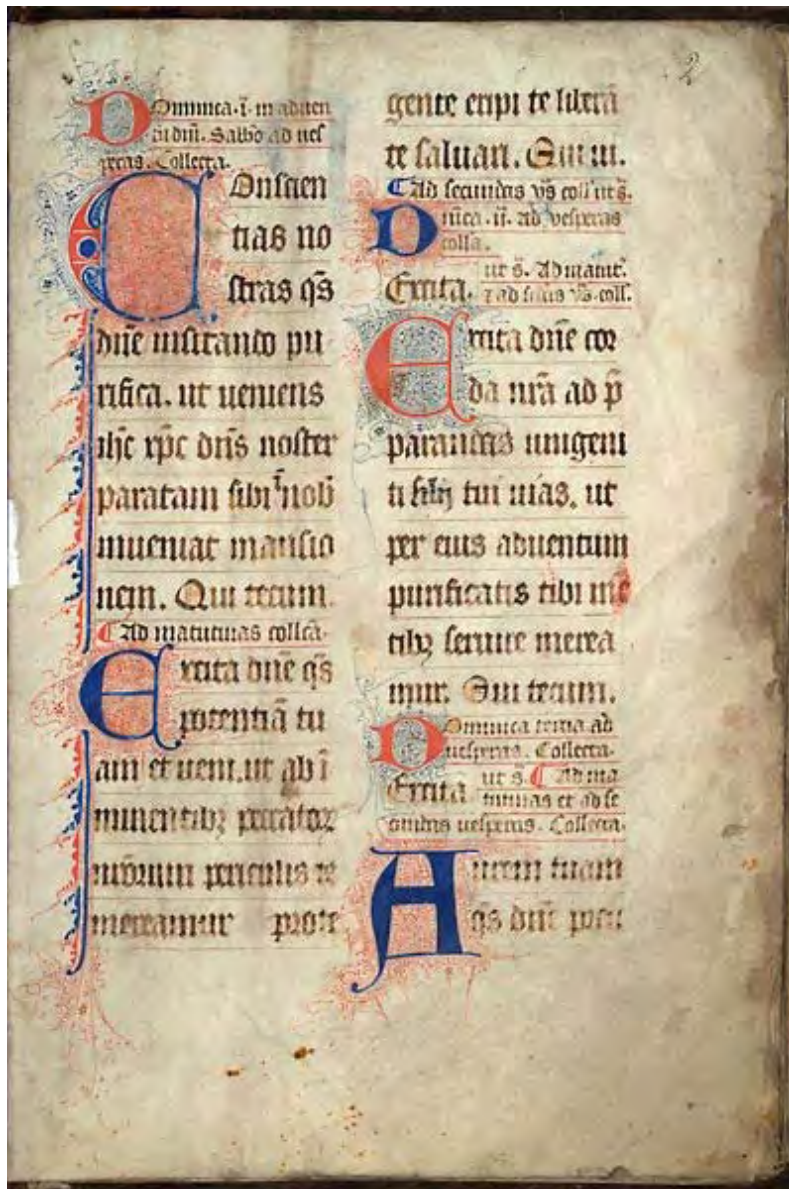 Dominica .i. in aduen
tu dnī. Sabbo ad ues
peras. Collecta.
Conscien
tias no
stras qs̄
dnē uisitando pu
rifica. ut ueniens
ihc̄ xpc̄ dns̄ noster
paratam sibi nob̄
inueniat mansio
nem. Qui tecum.
Ad matutinas collcā.
Excita dnē qs̄
potentiā tu
am et ueni. ut ab ī
minentibꝫ peccatoꝝ
nrōrum periculis te
mereamur prote
2
gente eripi te liberā
te saluari. Qui ui.
Ad secundas vs̄ coll' ut s̄.
Dnīca .ii. ad vesperas
colla.
Excita. ut s̄. Ad matut̄.
⁊ ad scdas vs̄. coll.
Excita dnē cor
da nrā ad p̄
parandas unigeni
ti filij tui uias. ut
per eius aduentum
purificatis tibi mē
tibꝫ seruire merea
mur. Qui tecum.
Dominica tercia ad
uesperas. Collecta.
Excita ut s̄. Ad ma
tutinas et ad se
cundas uesperas. Collecta.
Aurem tuam
qs̄ dnē preci